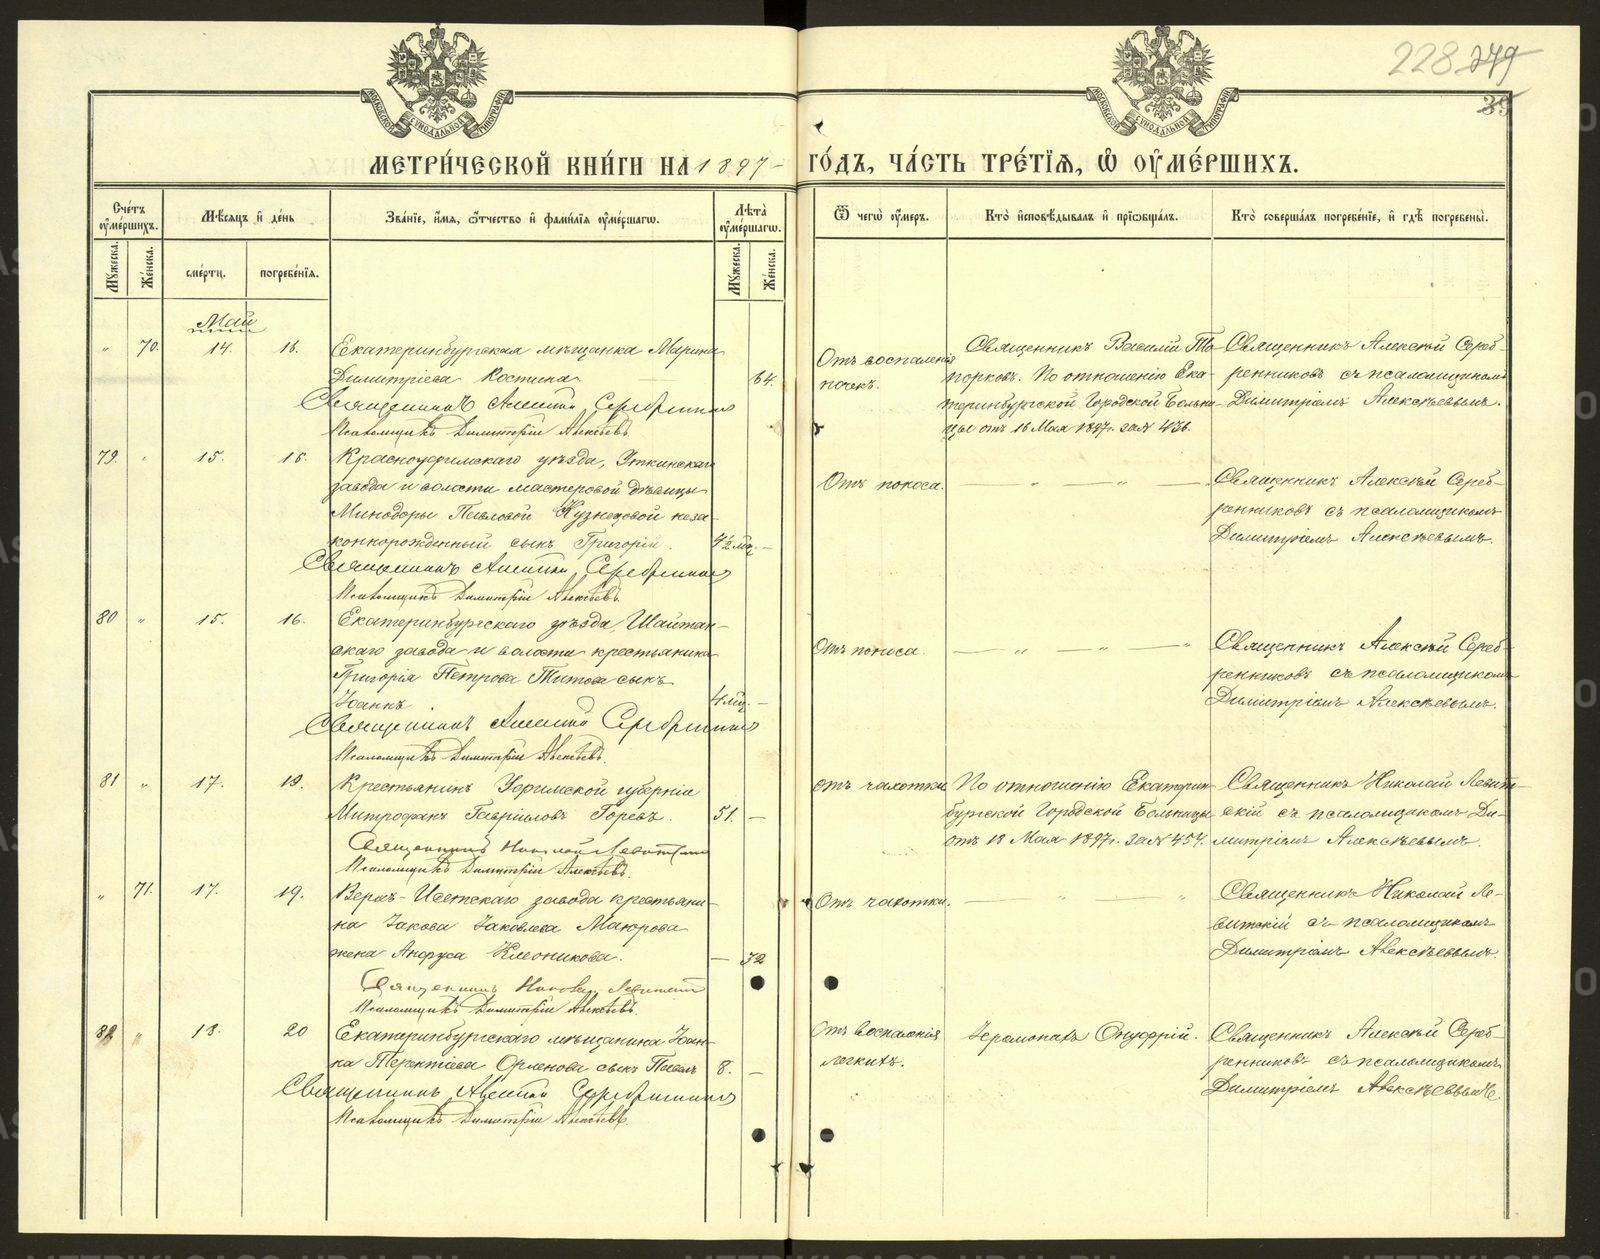 228 279
39
МОСКОВСКОЙ СѴНОДАЛЬНОЙ ТИПОГРАФІИ
МОСКОВСКОЙ СѴНОДАЛЬНОЙ ТИПОГРАФІИ
МЕТРИ́ЧЕСКОЙ КНИ́ГИ НА 1897 ГО́ДЪ, ЧА́СТЬ ТРЕ́ТІѦ, Ѡ҆ ОУ҆МЕ́РШИХЪ.
Сче́тъ оу҆ме́ршихъ.
Мѣ́сѧцъ и҆ де́нь
Зва́нїе, и҆́мѧ, ѻ҆́тчество и҆ фами́лїѧ оу҆ме́ршагѡ.
Лѣ́та оу҆ме́ршагѡ.
Ѿ чегѡ̀ оу҆́меръ.
Кто̀ и҆сповѣ́дывалъ и҆ прїѡбща́лъ.
Кто̀ соверша́лъ погребе́нїе, и҆ гдѣ̀ погребены̀.
Мꙋ́жеска.
Же́нска.
сме́рти.
погребе́нїѧ.
Мꙋ́жеска.
Же́нска.
Май
" 70. 14. 16. Екатеринбургская мѣщанка Марина
Димитріева Костина 64.
Священникъ Алексій Серебренниковъ
Псаломщикъ Димитрій Алексѣевъ
Отъ воспаленія
почекъ.
Священникъ Василій То-
порковъ. По отношенію Ека-
теринбургской Городской Больни-
цы отъ 16 Мая 1897 г. за № 436.
Священникъ Алексѣй Сереб-
ренниковъ съ псаломщикомъ
Димитріемъ Алексѣевымъ.
79. " 15. 16. Красноуфимскаго уѣзда, Уткинскаго
завода и волости мастеровой дѣвицы
Минодоры Павловой Кузнецовой неза-
коннорожденный сынъ Григорій. 4½ мѣс. —
Священникъ Алексій Серебренниковъ
Псаломщикъ Димитрій Алексѣевъ
Отъ поноса. — " — " —
Священникъ Алексѣй Сереб-
ренниковъ съ псаломщикомъ
Димитріемъ Алексѣевымъ.
80 " 15. 16. Екатеринбургскаго уѣзда, Шайтан-
скаго завода и волости крестьянина
Григорія Петрова Титова сынъ
Іоаннъ 4 мѣс. —
Священникъ Алексій Серебренниковъ
Псаломщикъ Димитрій Алексѣевъ.
Отъ поноса. — " — " — "
Священникъ Алексѣй Сереб-
ренниковъ съ псаломщикомъ
Димитріемъ Алексѣевымъ.
81 " 17. 19. Крестьянинъ Уфимской губерніи
Митрофанъ Гавріиловъ Горевъ. 51. —
Священникъ Николай Левитскій
Псаломщикъ Димитрій Алексѣевъ.
отъ чахотки
По отношенію Екатерин-
бургской Городской Больницы
отъ 18 Мая 1897 г. за № 454.
Священникъ Николай Левит-
скій съ псаломщикомъ Ди-
митріемъ Алексѣевымъ.
" 71. 17. 19. Верхъ-Исетскаго завода крестьяни-
на Іакова Іаковлева Маюрова
жена Анфуса Клеоникова. — 72
Священникъ Николай Левитскій
Псаломщикъ Димитрій Алексѣевъ.
Отъ чахотки. — " — "
Священникъ Николай Ле-
витскій съ псаломщикомъ
Димитріемъ Алексѣевымъ.
82 " 18. 20 Екатеринбургскаго мѣщанина Іоан-
на Терентіева Орленова сынъ Павелъ 8. —
Священникъ Алексій Серебренниковъ
Псаломщикъ Димитрій Алексѣевъ.
Отъ воспаленія
легкихъ.
Іеромонахъ Онуфрій.
Священникъ Алексѣй Сереб-
ренниковъ съ псаломщикомъ
Димитріемъ Алексѣевымъ.